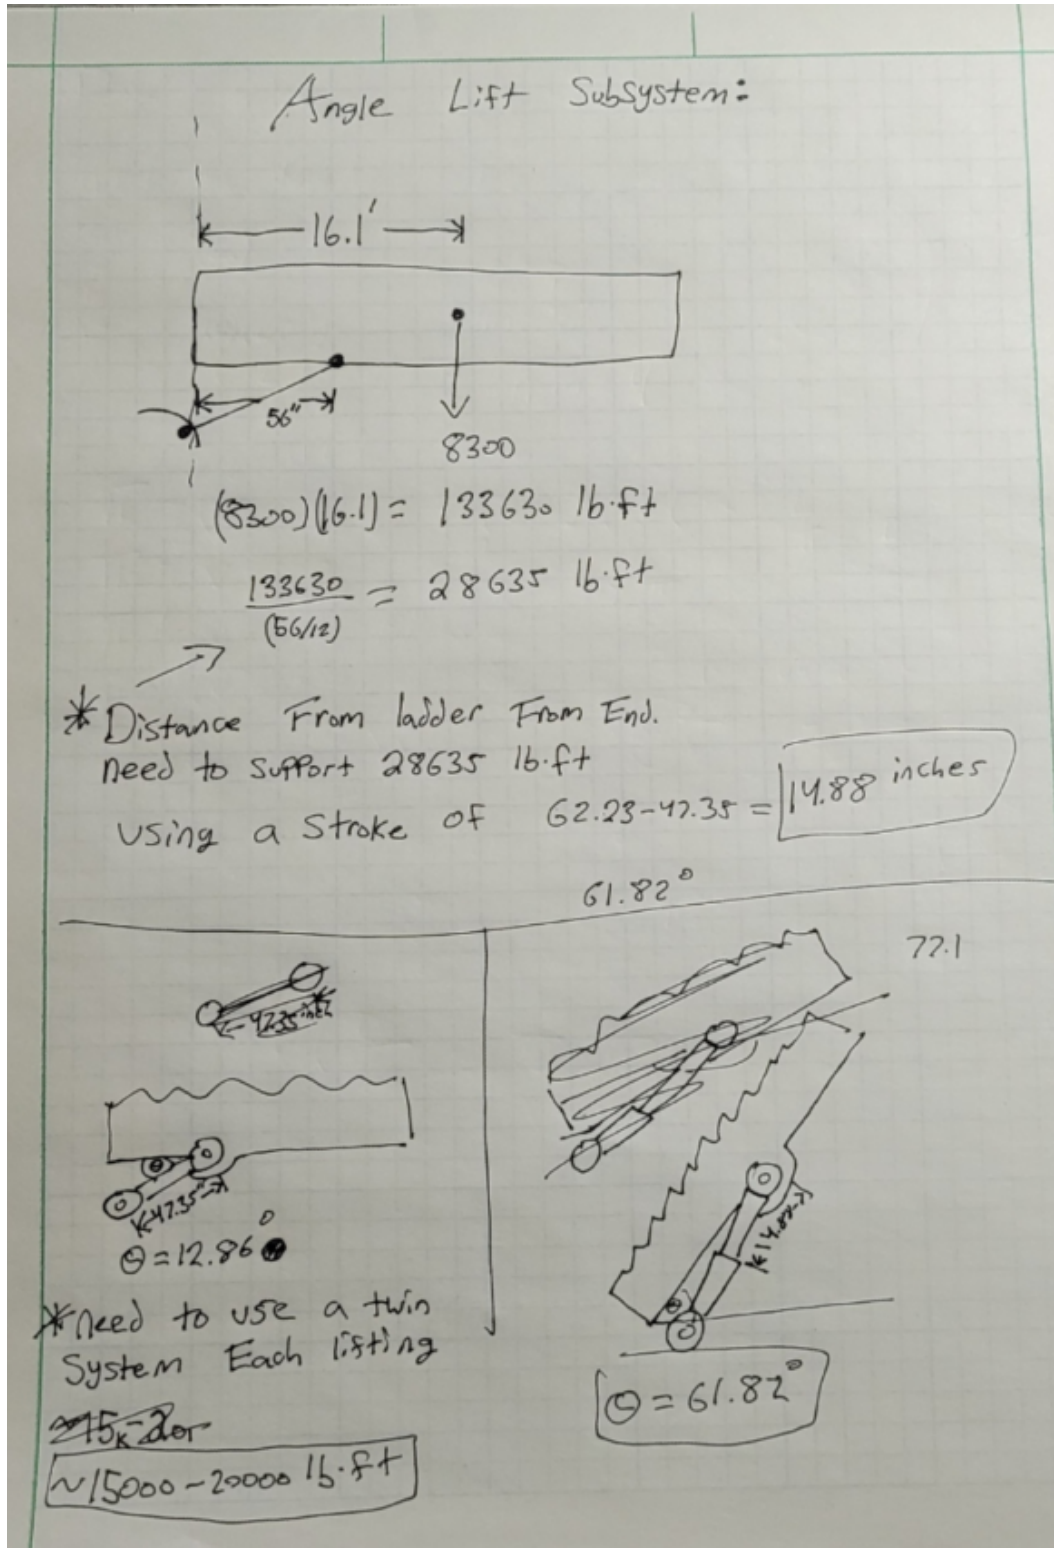 Angle Lift Subsystem:
16.1'
56"
8300
(8300)(16.1) = 133630 lb·ft
133630
(56/12)
= 28635 lb·ft
* Distance From ladder From End.
need to support 28635 lb·ft
using a stroke of 62.23-47.35 = 14.88 inches
61.82°
77.1
47.35 inch
47.35"
θ = 12.86°
* need to use a twin
System Each lifting
~15000-20000 lb·ft
θ = 61.82°